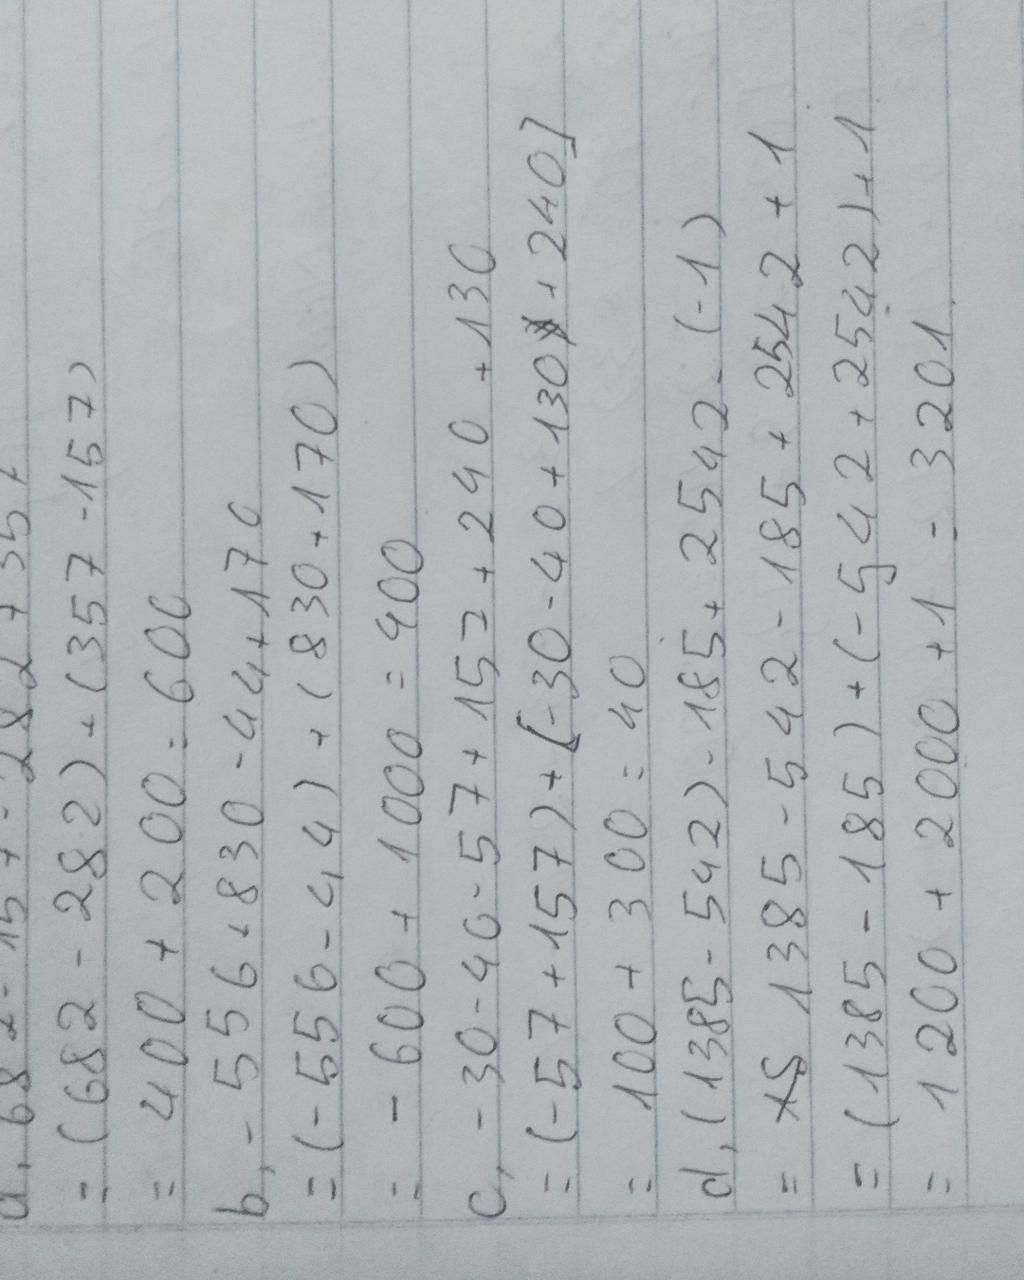 a, 682 - 157 - 282 + 357
= (682 - 282) + (357 - 157)
= 400 + 200 = 600
b, - 556 + 830 - 44 + 170
= (- 556 - 44) + (830 + 170)
= - 600 + 1000 = 400
c, - 30 - 40 - 57 + 157 + 240 + 130
= (- 57 + 157) + [- 30 - 40 + 130 + 240]
= 100 + 300 = 40
d, (1385 - 542) - 185 + 2542 - (- 1)
= 1385 - 542 - 185 + 2542 + 1
= (1385 - 185) + (- 542 + 2542) + 1
= 1200 + 2000 + 1 = 3201